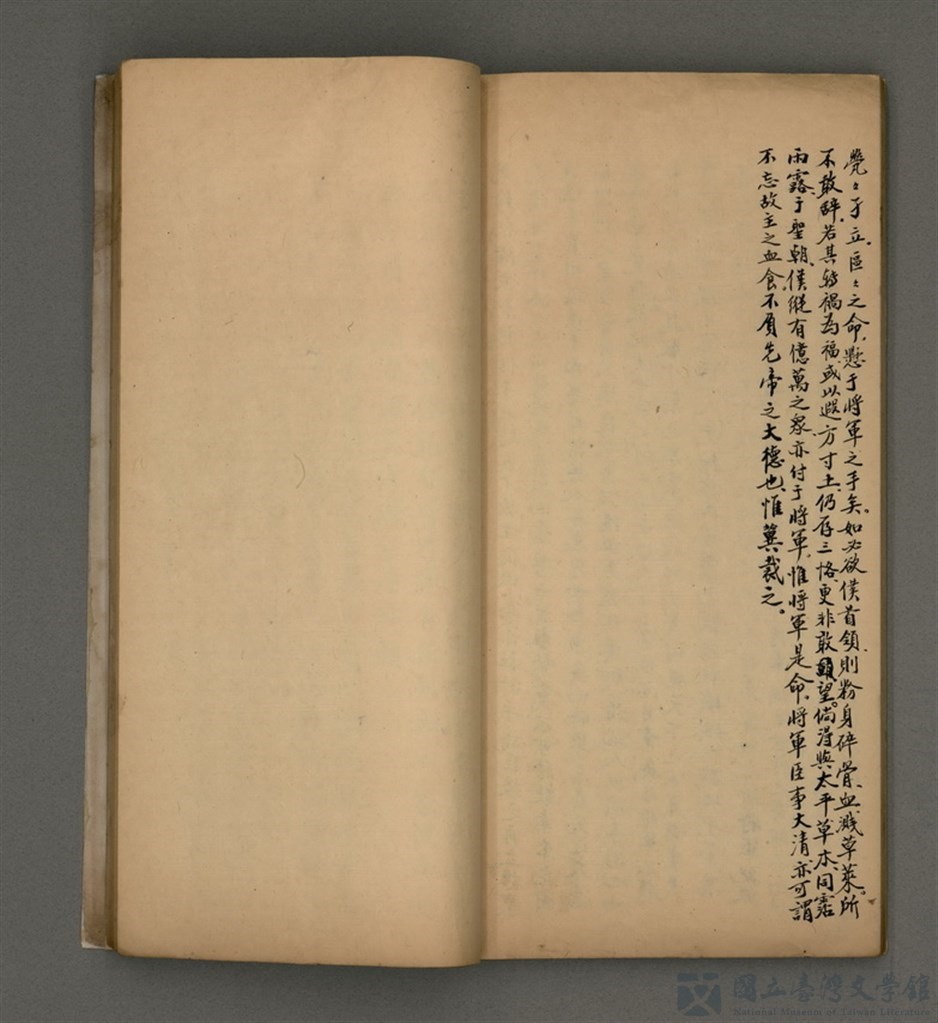 煢〻孑立。區〻之命。懸于將軍之手矣。如必欲僕首領。則粉身碎骨、血濺草萊。所
不敢辭。若其轉禍為福。或以遐方寸土、仍存三恪、更非敢望。倘得與太平草木、同霑
雨露于聖朝、僕縱有億萬之衆、亦付于將軍。惟將軍是命。將軍臣事大清、亦可謂
不忘故主之血食。不負先帝之大德也、惟冀裁之。
國立臺灣文學館
National Museum of Taiwan Literature